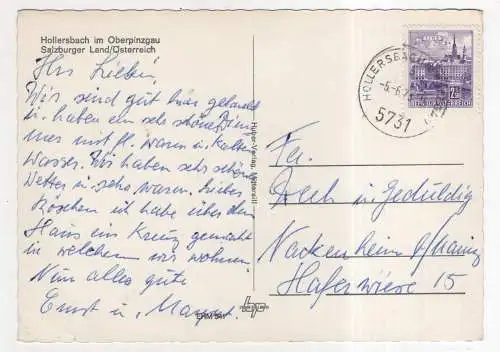 Hollersbach im Oberpinzgau
Salzburger Land/Österreich
Ihr Lieben!
Wir sind gut hier gelandet
u. haben ein sehr schönes Zim
mer mit fl. warm u. kalten
Wasser. Wir haben sehr schönes
Wetter u. sehr warm. Liebes
Röschen ich habe über dem
Haus ein Kreuz gemacht
in welchem wir wohnen.
Nun alles gute
Ernst u. Margret.
Huber-Verlag, Mittersill
HOLLERSBACH
5731
REPUBLIK ÖSTERREICH
Fa.
Dech u. Geduldig
Nackenheim b/Mainz
Haferwiese 15